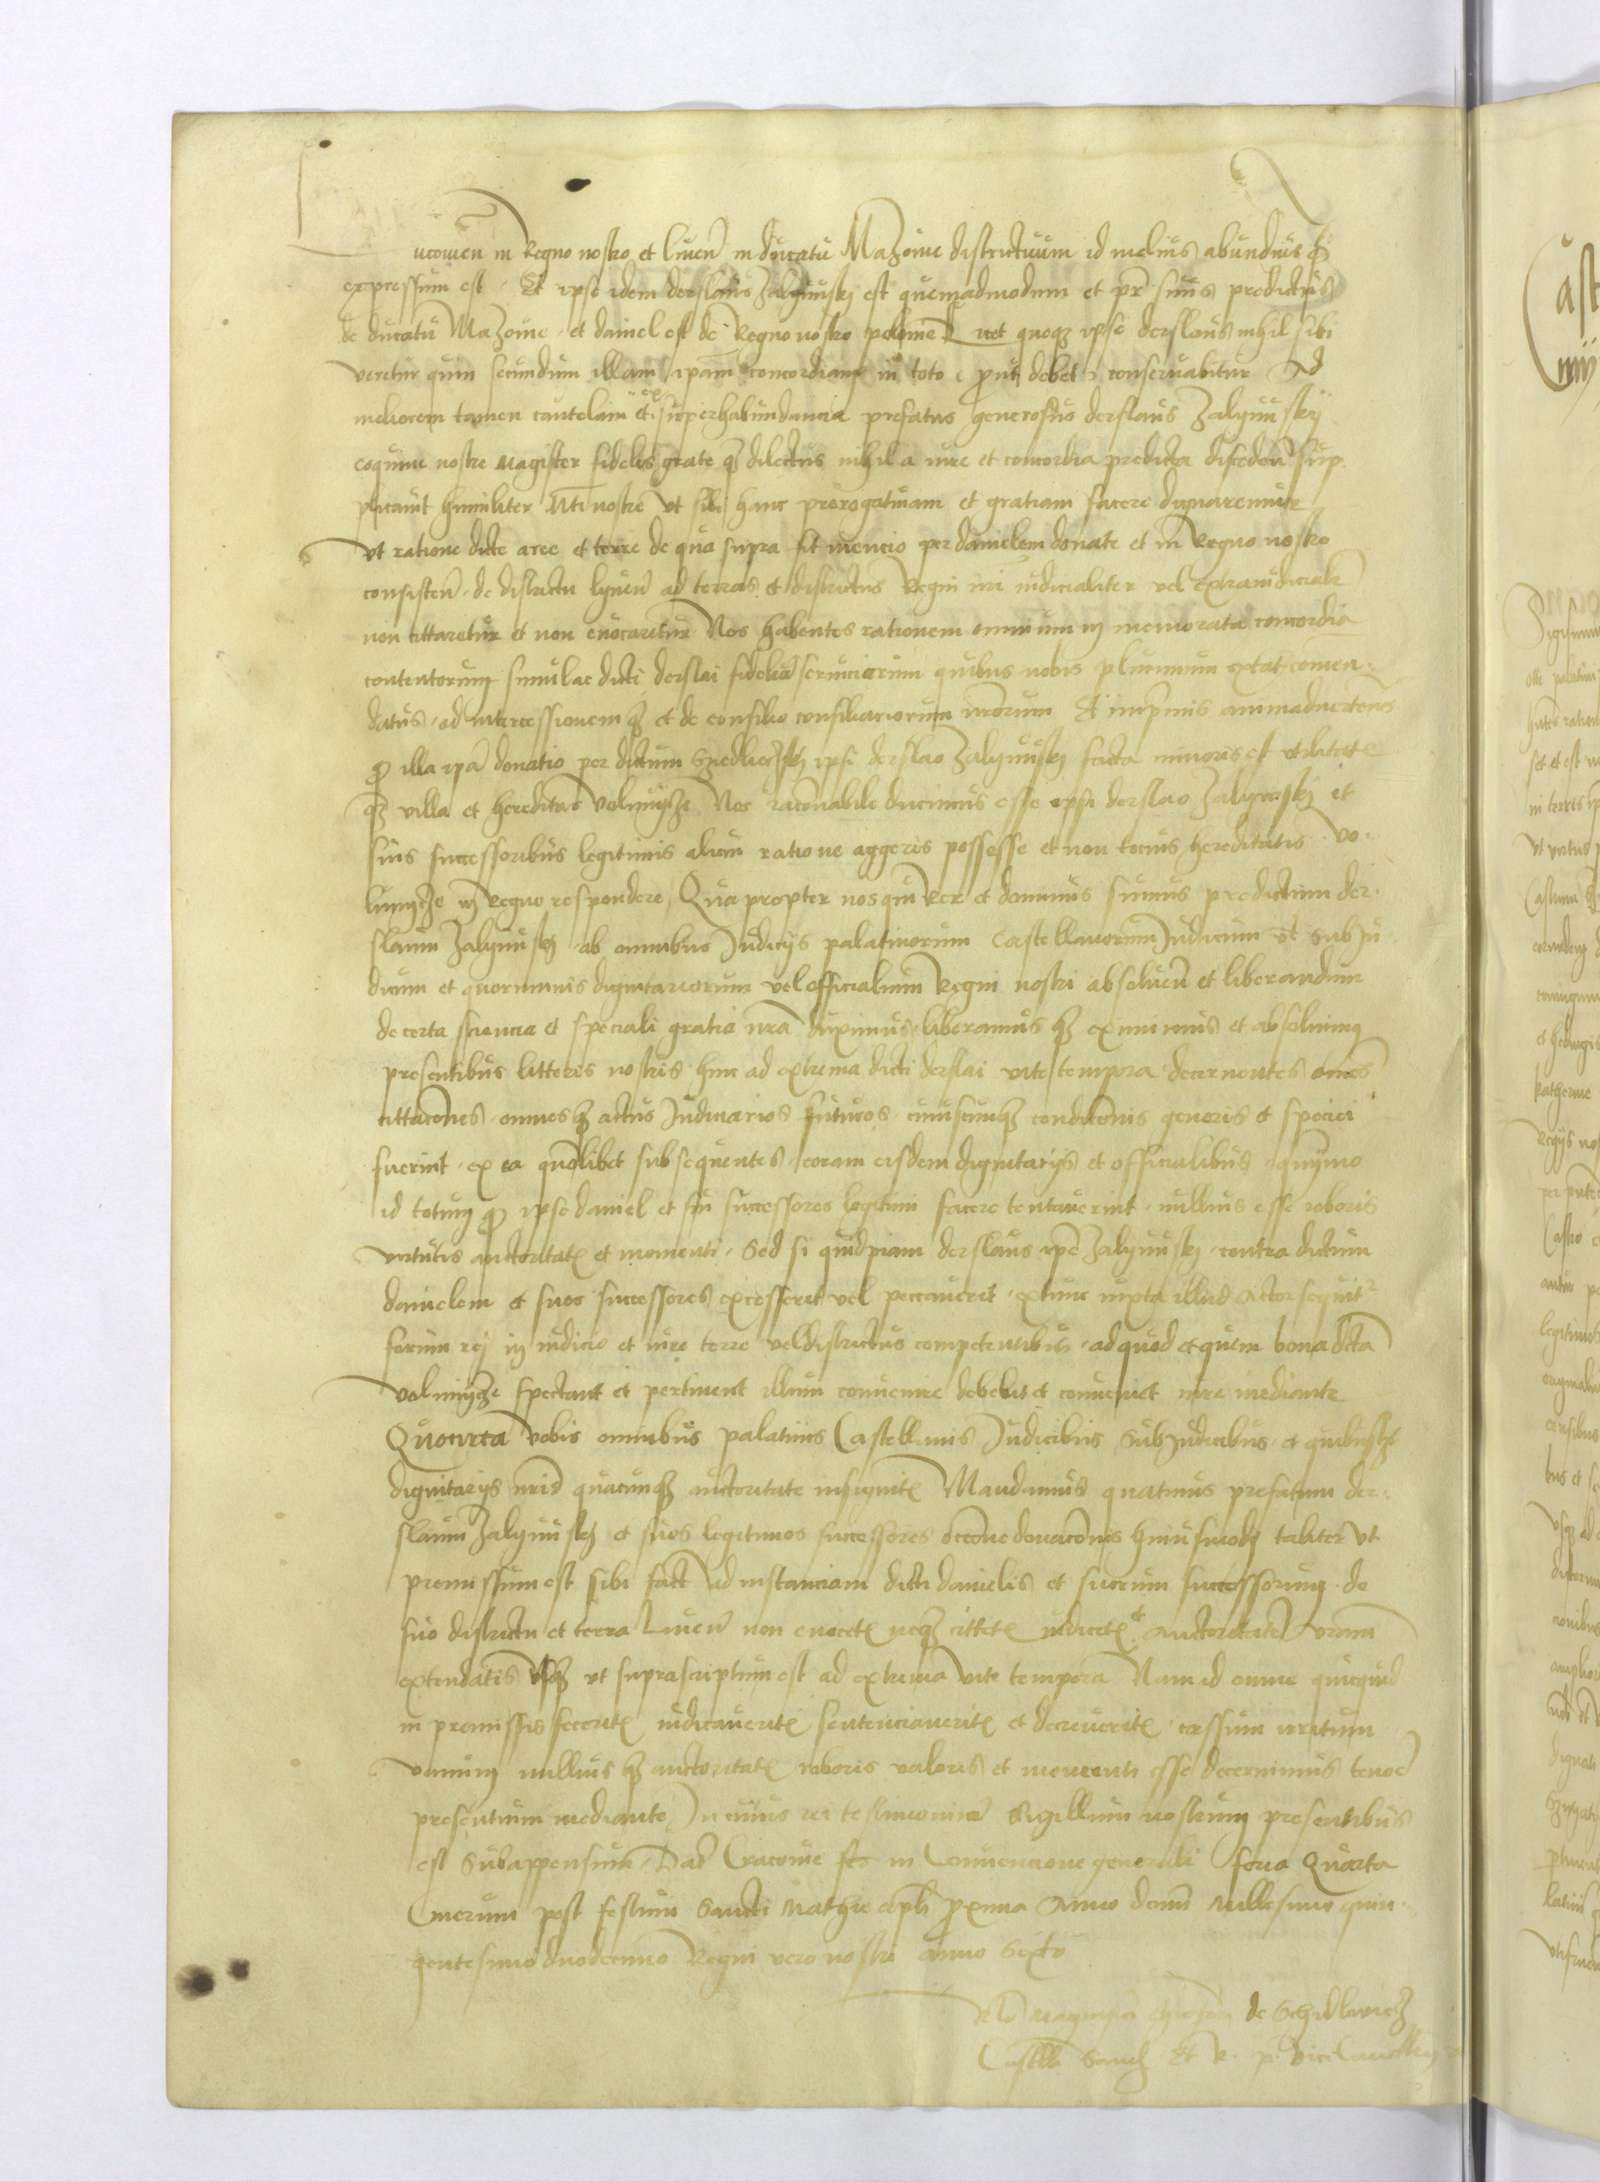 in Regno nostro et Liuen in ducatu Mazouie districtuum id melius abundius
expressum est. Et ipse idem derslaus Zalynuskj est quemadmodum et pr suus predictus
de ducatu Mazouie et daniel est de Regno nostro polonie Licet quoque ipse derslaus nihil sibi
veretur quin secundum illam ipam concordiam in toto prout debet conseruabitur Ad
meliorem tamen cautelam et superhabundancia prefatus generosus derslaus Zalynuskij
coquine nostre Magister fidelis grate dilectus nihil a iure et concordia predicta discedens sup
plicauit humiliter Mti nostre vt sibi hanc prerogatiuam et gratiam facere dignaremur
vt ratione dicte aree et terre de qua supra fit mencio per danielem donate et in Regno nostro
consisten de districtu lyuen ad terras et districtus Regni nri iudicialiter vel extraiudicialr
non cittaretur et non euocaretur Nos habentes rationem omnium in memorata concordia
contentorum simulac dicti derslai fidelium seruiciorum quibus nobis plurimum extat comen
datus ad intercessionem et de consilio consiliariorum nrorum Et inprimis animaduertens
illa ipa donatio per dictum ipsi derslao Zalynuskj facta minoris est vtilitatis
villa et hereditas Volunysze Nos racionabile ducimus esse ipsi derslao Zalynuskj et
suis successoribus legitimis alicui ratione aggeris possesse et non tocius hereditatis Vo
lunysze in Regno respondere Qua propter nos qui Rex et dominus sumus predictum der
slaum Zalynuskj ab omnibus Judicijs palatinorum Castellanorum Judicum et SubJu
dicum et quorumuis dignitariorum vel officialium Regni nostri absoluen et liberandum
de certa sciencia et speciali gratia nra duximus liberamus eximimus et absoluimus
presentibus litteris nostris hinc ad extrema dicti derslai vite tempora decernentes omnes
cittacones omnes actus Judiciarios futuros cuiuscunque condiconis generis et speciei
fuerint ex ea quolibet subsequentes coram eisdem dignitarijs et officialibus quynymo
id totum ipse daniel et sui successores legitimi facere tentauerint nullius esse roboris
virtutis auctoritatis et momenti Sed si quidpiam derslaus ipe Zalynuskj contra dictum
danielem et suos successores excesserit vel peccauerit extunc iuxta illud Actor sequitur
forum rej in iudicio et iure terre vel districtus competentibus ad quod et quem bona dicta
Volunysze spectant et pertinent illum conuenire debebit et conueniet iure mediante
Quocirca vobis omnibus palatinis Castellanis Judicibus SubJudicibus et quibusuis
dignitarijs nris quacunque auctoritate insignitis Mandamus quatinus prefatum der
slaum Zalynuskj et suos legitimos successores donaconis huiusmodi taliter vt
premissum est sibi fact ad instanciam dicti danielis et suorum successorum de
suo districtu et terra Liuen non euocetis neque cittetis iudicetis et auctoritatem vram
extendatis vsque vt suprascriptum est ad extrema vite tempora Nam id omne quicquid
in premissis feceritis iudicaueritis sentenciaueritis et decreueritis cassum irritum
vanum nullius auctoritatis roboris valoris et momenti esse decernimus tenore
presentium mediante In cuius rei testimonium Sigillum nostrum presentibus
est Subappensum Dat Cracouie in Conuencione generali feria Quarta
Cinerum post festum Sancti Mathie apli proxima Anno domini Millesimo quin
gentesimo duodecimo Regni vero nostri Anno Sexto
de Schidlowiecz